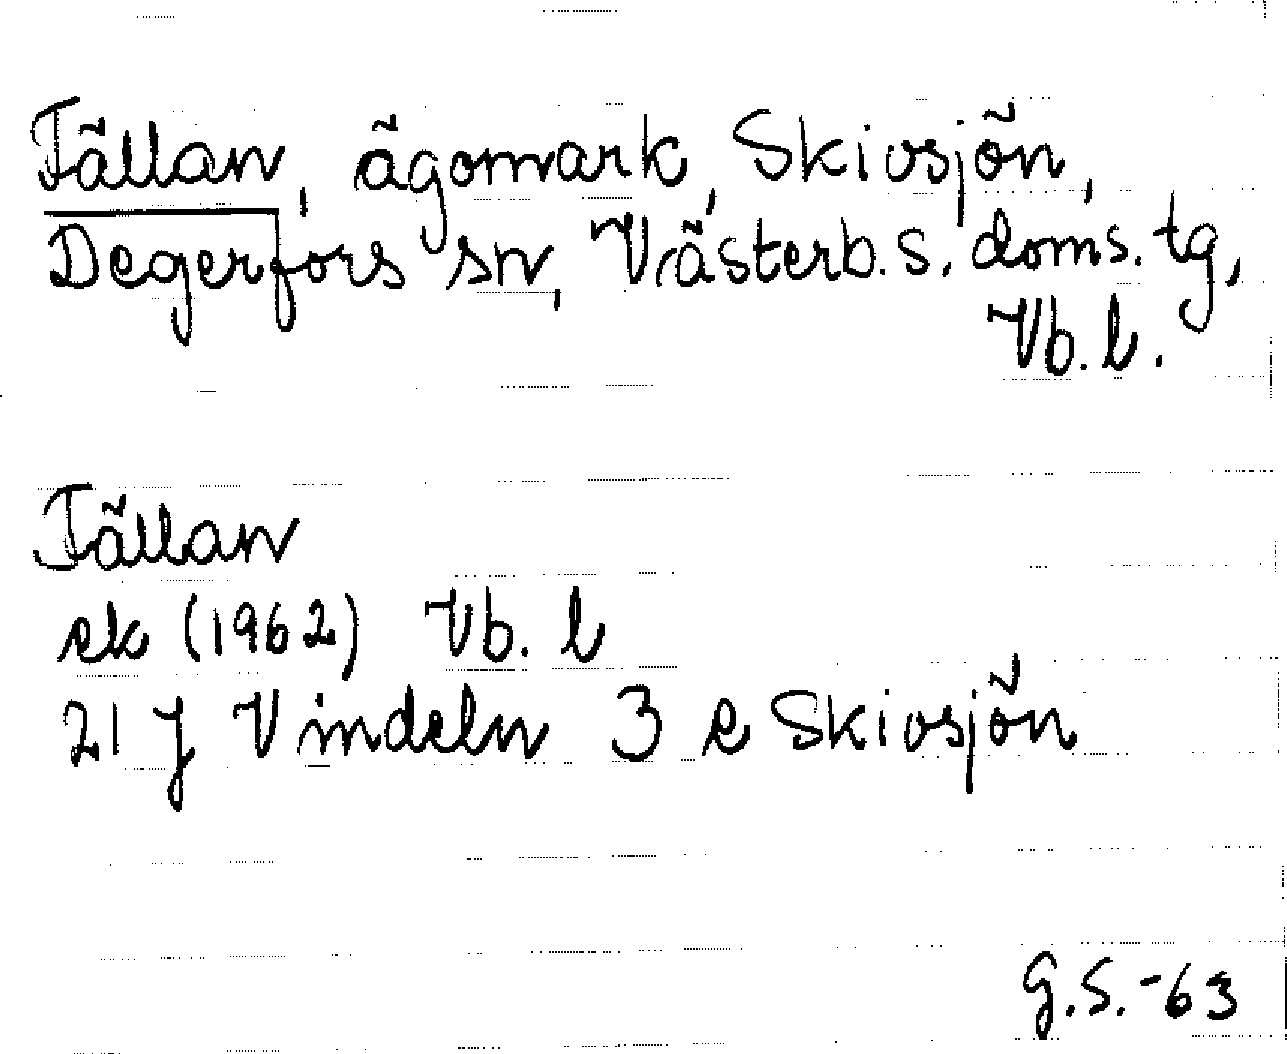 Fällan, ägomark, Skivsjön,
Degerfors sn, Västerb. s. doms. tg,
Vb. l.
Fällan
ek (1962) Vb. l
21 J Vindeln 3 e Skivsjön
G.S.-63